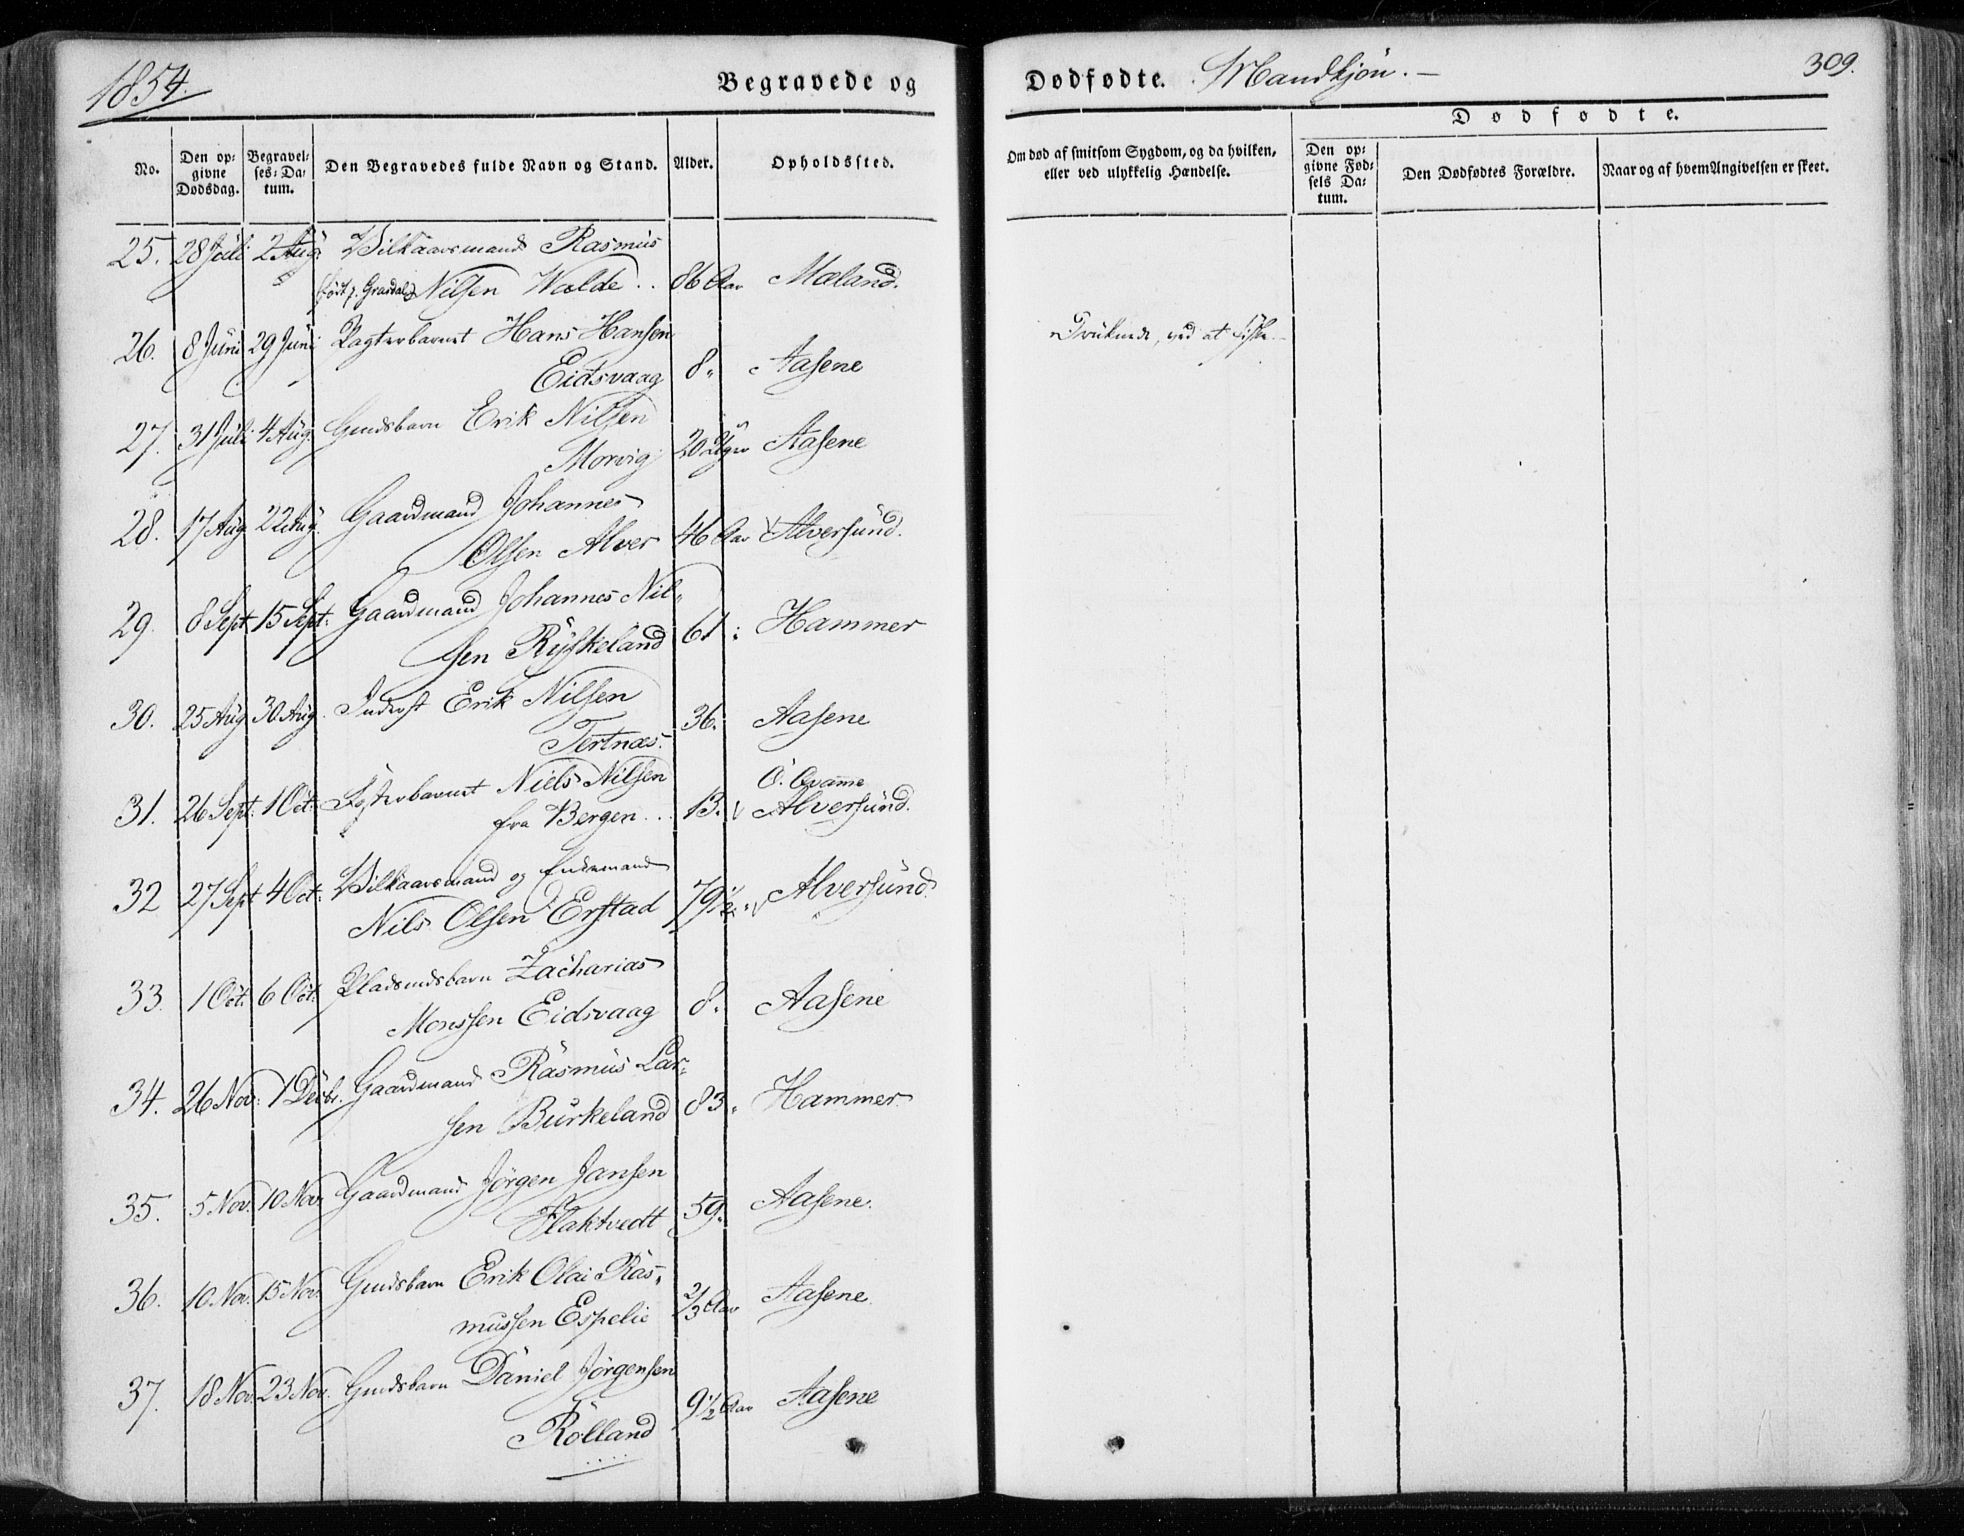 1854.
Begravede og
Dødfødte. Mandkjøn. —
309.
No.
Den op-
givne
Dødsdag.
Begravel-
ses-Da-
tum.
Den Begravedes fulde Navn og Stand.
Alder.
Opholdssted.
Om død af smitsom Sygdom, og da hvilken,
eller ved ulykkelig Hændelse.
Dødfødte.
Den op-
givne Fød-
sels Da-
tum.
Den Dødfødtes Forældre.
Naar og af hvem Angivelsen er skeet.
25. 28 Juli 2 Aug. Vilkaarsmand Rasmus
Nilsen Walde.. 86 Aar Mæland.
26. 8 Juni 29 Juni Hans Hansen
Druknede, ved at fiske.
Eidsvaag 8 " Aasene
27. 31 Juli 4 Aug. Gmdsbarn Erik Nilsen
Morvig 20 Uger Aasene
28. 17 Aug. 22 Aug. Gaardmand Johannes
Olsen Alver 46 Aar Alversund.
29. 8 Sept. 15 Sept. Gaardmand Johannes Nil-
sen Ryskeland 61 " Hammer
30. 25 Aug 30 Aug. Inderst Erik Nilsen
Tertnæs. 36. Aasene
31. 26 Sept. 1 Oct. Fosterbarnet Niels Nilsen
fra Bergen... 13. Ö. Qvamme
Alversund.
32 27 Sept 4 Oct. Vilkaarsmand og Enkemand
Nils Olsen Erstad 79 1/2 " Alversund.
33. 1 Oct. 6 Oct. Pladsmdsbarn Zacharias
Monssen Eidsvaag 8. Aasene
34. 26 Nov. 1 Decbr. Gaardmand Rasmus Lar-
sen Burkeland 83. Hammer
35. 5 Nov. 10 Nov. Gaardmand Jörgen Jansen
Flaktvedt 59. Aasene.
36. 10 Nov. 15 Nov. Gmdsbarn Erik Olai Ras-
mussen Espelie 2/3 Aar Aasene.
37. 18 Nov. 23 Nov. Gmdsbarn Daniel Jörgensen
Rölland 9 1/2 Aar Aasene